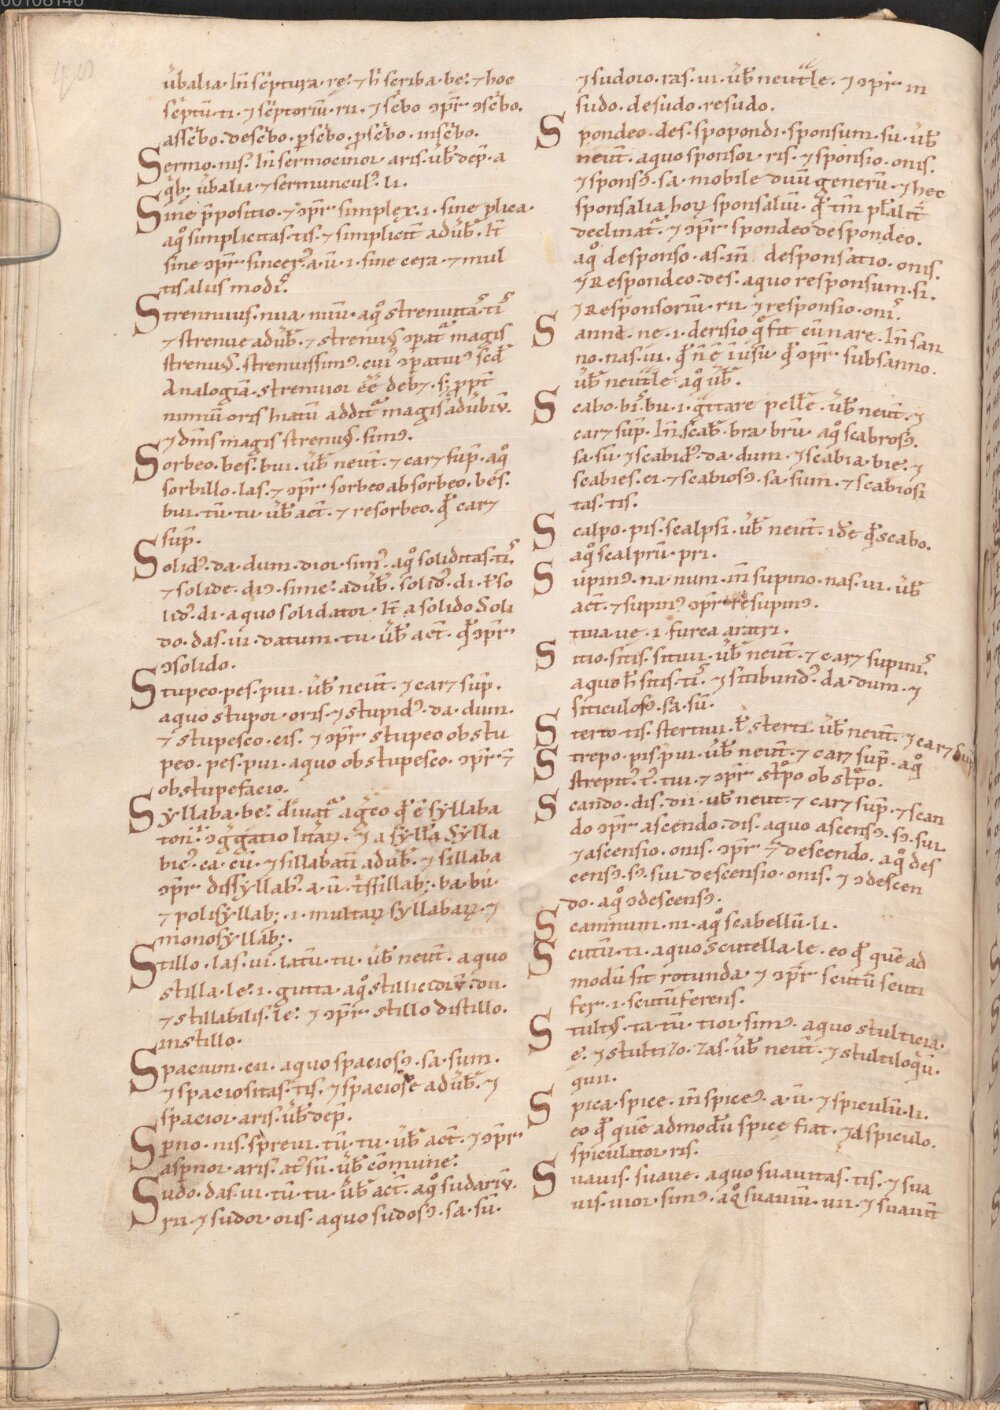 ūbalia. Iñ scͥptura. re. ⁊ h̄ scriba. be. ⁊ hoc
scͥptū. ti. ⁊ scͥptoriū. rii. ⁊ scͥbo ɔpr̄ ɔscͥbo.
asscͥbo. descͥbo. p̄scͥbo. ꝓscͥbo. inscͥbo.
Sermo. nis. Iñ sermocinor. aris. ūb̄ dep̄. a
q̊b; ūbalia ⁊ sermuncul᷒. li.
Sine p̄positio. ⁊ ɔpr̄ simplex. i. sine plica.
aq̊ simplicitas. tis. ⁊ simplicit̄ adūb̄. It̄
sine ɔpr̄ sincer᷒. a. ū. i. sine cera. ⁊ mul
tis aliis modi᷒.
Strennuus. nua. nuū. aq̊ strenuita᷒. ti᷒
⁊ strenue adūb̄. ⁊ strenuꝰ ɔpat̄ magis
strenuꝰ. strenuissimꝰ. cui᷒ ɔparatiuꝰ scd̄
Analogiā. strenuior eē deb; . s; ꝓpt̄
nimiū oris hiatū addit̄ magis adūbiū.
⁊ dr̄ magis strenuꝰ. simꝰ.
Sorbeo. bes. bui. ūb̄ neut̄. ⁊ car& sup̄. aq̊
sorbillo. las. ⁊ ɔpr̄ sorbeo absorbeo. bes.
bui. tū. tu. ūb̄ act̄. ⁊ resorbeo. qd̄ car&
sup̄.
Solid᷒. da. dum. dior. sim᷒. aq̊ soliditas. ti᷒.
⁊ solide. di᷒. sime. adūb̄. solid᷒. di. ł so
lid᷒. di. a quo solidator. It̄ a solido Soli
do. das. ui. datum. tu. ūb̄ act̄. qd̄ ɔpr̄
ɔsolido.
Stupeo. pes. pui. ūb̄ neut̄. ⁊ car& sup̄.
aquo stupor. oris. ⁊ stupid᷒. da. dum.
⁊ stupesco. cis. ⁊ ɔpr̄ stupeo obstu
peo. pes. pui. aquo obstupesco. ɔpr̄ ⁊
obstupefacio.
Syllaba. be. diriuat̄ ageo qd̄ ē syllaba
ɔg̅gatio lr̄aꝝ. ⁊ a syllaba Sylla
bic᷒. ca. cū. ⁊ sillabati adūb̄. ⁊ sillaba
ɔpr̄ dissyllab᷒. a. ū. t̄ssillab;. ba. bū.
⁊ polisyllab;. i. multaꝝ syllabaꝝ. ⁊
monosyllab;.
Stillo. las. ui. latū. tu. ūb̄ neut̄. aquo
stilla. le. i. gutta. aq̊ stillicidiū. dii.
⁊ stillabilis. le. ⁊ ɔpr̄ stillo distillo.
instillo.
Spacium. cii. aquo spaciosꝰ. sa. sum.
⁊ spaciositas. tis. ⁊ spaciose adūb̄. ⁊
spacior. aris. ūb̄ dep̄.
Sꝑno. nis. spreui. tū. tu. ūb̄ act̄. ⁊ ɔpr̄
aspnor. aris. at᷒ sū. ūb̄ cōmune.
Sudo. das. ui. tū. tu. ūb̄ act̄. aq̊ sudariū.
rii. ⁊ sudor. oris. aquo sudosꝰ. sa. sū.
⁊ sudoro. ras. ui. ūb̄ neut̄le. ⁊ ɔpr̄ in
sudo. desudo. resudo.
Spondeo. des. spopondi. sponsum. su. ūb̄
neut̄. aquo sponsor. ris. ⁊ sponsio. onis.
⁊ sponsꝰ. sa. mobile duū generū. ⁊ hec
sponsalia hoꝝ sponsaliū. qd̄ tm̄ pl̄alit̄
declinat̄. ⁊ ɔpr̄ spondeo despondeo.
aq̊ desponso. as. iñ desponsatio. onis.
⁊ Respondeo. des. aquo responsum. si.
⁊ Responsoriū. rii. ⁊ responsio. oni᷒.
Sanna. ne. i. derisio q̊ fit cū nare. Iñ san
no. nas. ui. qd̄ n̄ ē ī usu qd̄ ɔpr̄ subsanno.
ūb̄ neut̄le aq̊ ūb̄.
Scabo. bi. bu. i. g̅ttare pelle. ūb̄ neut̄. ⁊
car& sup̄. Iñ scab̄. bra. brū. aq̊ scabrosꝰ.
sa. sū. ⁊ scabid᷒. da. dum. ⁊ scabia. bie. ⁊
scabies. ei. ⁊ scabiosꝰ. sa. sum. ⁊ scabiosi
tas. tis.
Scalpo. pis. scalpsi. ūb̄ neut̄. idē qd̄ scabo.
aq̊ scalprū. pri.
Supinꝰ. na. num. iñ supino. nas. ui. ūb̄
act̄. ⁊ supinꝰ ɔpr̄ resupinꝰ.
tiua. ue. i. furca aratri.
Sitio. sitis. sitiui. ūb̄ neut̄. ⁊ car& supini᷒.
aquo h̄ sitis. ti᷒. ⁊ sitibund᷒. da. dum. ⁊
siticulosꝰ. sa. sū.
Sterto. tis. stertui. ł sterti. ūb̄ neut̄. ⁊ car& sup̄
Strepo. pis. pui. ūb̄ neut̄. ⁊ car& sup̄. aq̊
strepit᷒. t᷒. tui. ⁊ ɔpr̄ st̄po obst̄po.
Scando. dis. dii. ūb̄ neut̄. ⁊ car& sup̄. ⁊ scan
do ɔpr̄ ascendo. dis. aquo ascensꝰ. sꝰ. sui.
⁊ ascensio. onis. ɔpr̄ ⁊ descendo. aq̊ des
censꝰ. sꝰ. sui. descensio. onis. ⁊ ɔdescen
do. aq̊ ɔdescensꝰ.
Scamnum. ni. aq̊ scabellū. li.
Scutū. ti. aquo scutella. le. eo qd̄ quē ad
modū sit rotunda. ⁊ ɔpr̄ scutū scuti
fer. i. scutū ferens.
Stultꝰ. ta. tū. tior. simꝰ. aquo stulticia.
e. ⁊ stultizo. zas. ūb̄ neut̄. ⁊ stultiloquiū.
quii.
Spica. spice. iñ spiceꝰ. a. ū. ⁊ spiculū. li.
eo qd̄ quē admodū spice fiat. ⁊ A spiculo.
spiculator. ris.
Suauis. suaue. aquo suauitas. tis. ⁊ sua
uis. uior. simꝰ. aq̊ suauiū. uii. ⁊ suauit̄